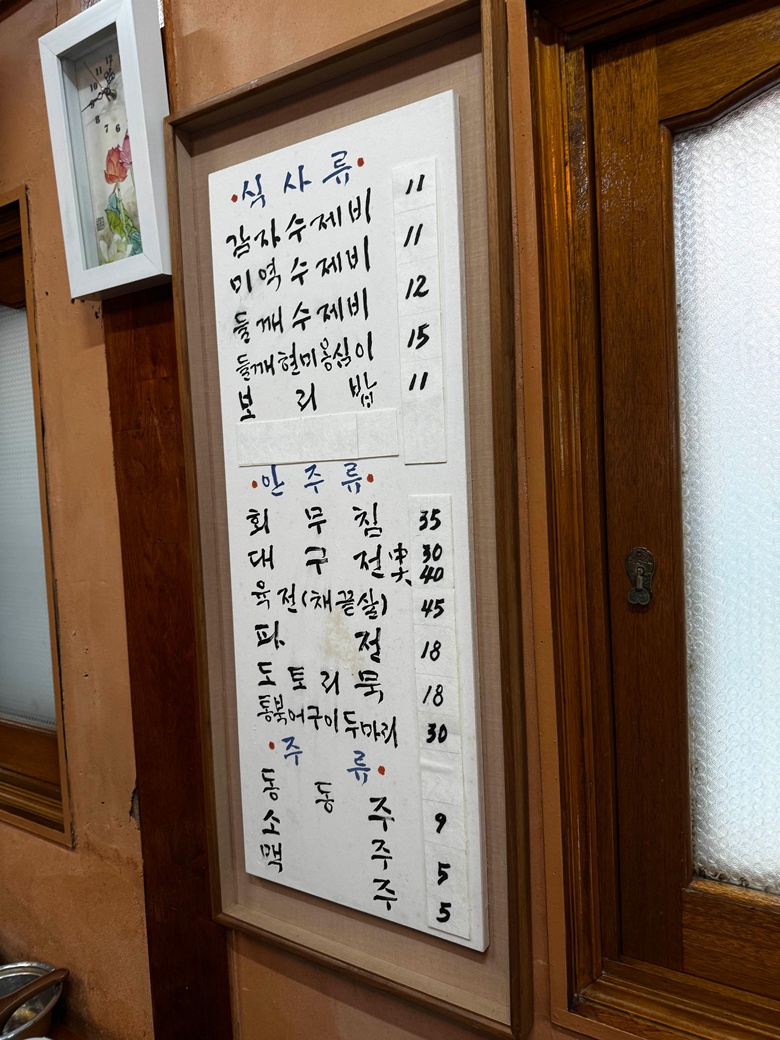 식사류
감자수제비 11
미역수제비 11
들깨수제비 12
들깨현미옹심이 15
보리밥 11
안주류
회무침 35
대구전 中 30
大 40
육전(채끝살) 45
파전 18
도토리묵 18
통북어구이두마리 30
주류
동동주 9
소주 5
맥주 5